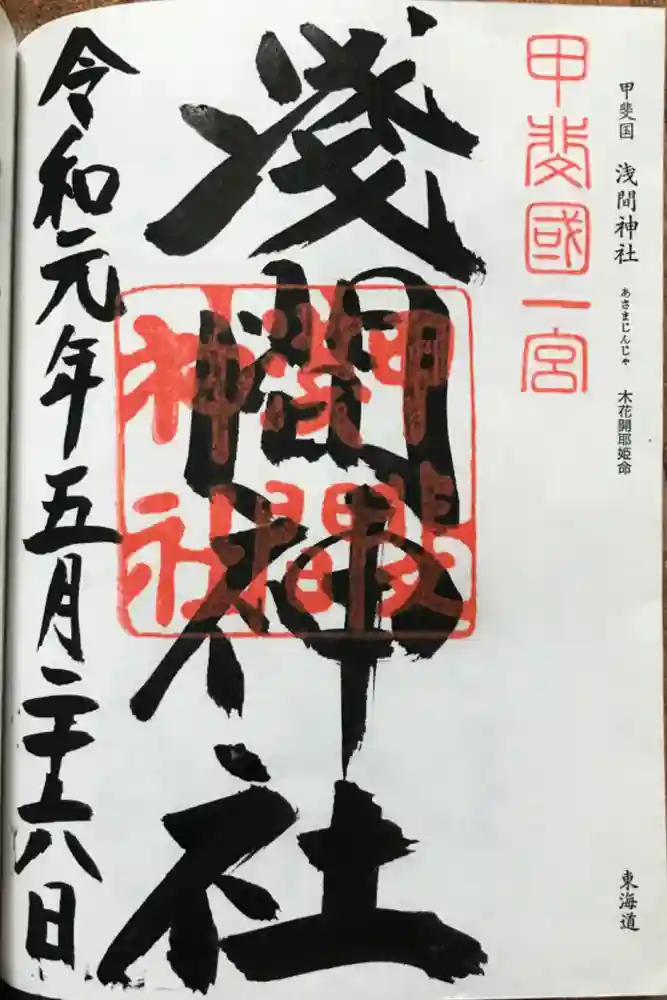 甲斐国 浅間神社 あさまじんじゃ 木花開耶姫命
東海道
甲斐國一宮
淺間神社
甲斐
淺間
神社
令和元年五月二十六日